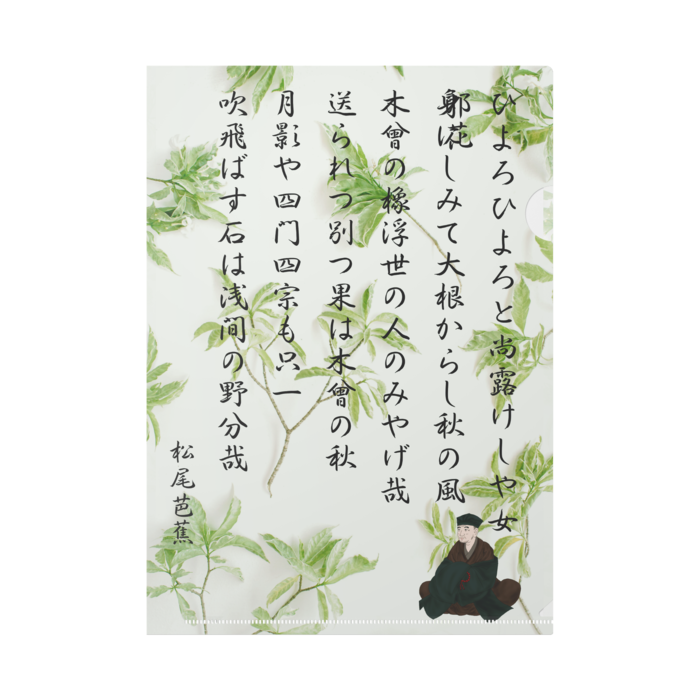 ひよろひよろと尚露けしや女
郎花
身にしみて大根からし秋の風
木曾の橡浮世の人のみやげ哉
送られつ別つ果は木曾の秋
月影や四門四宗も只一
吹飛ばす石は浅間の野分哉
松尾芭蕉